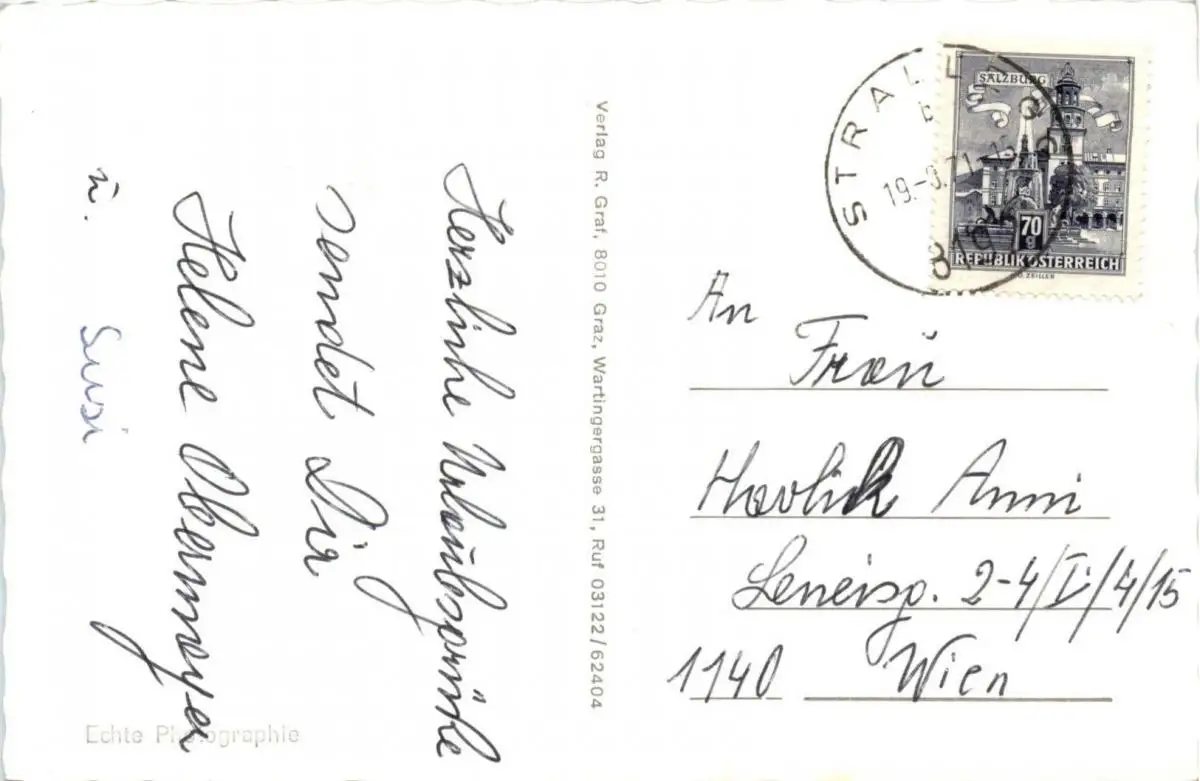 Herzliche Urlaubsgrüße
sendet Dir
Helene Obermayer
u. Susi
Verlag R. Graf, 8010 Graz, Wartingergasse 31, Ruf 03122/62404
Echte Photographie
STRALLEGG
SALZBURG
70
g
REPUBLIK ÖSTERREICH
An
Frau
Havlick Anni
2-4/I/4/15
1140 Wien